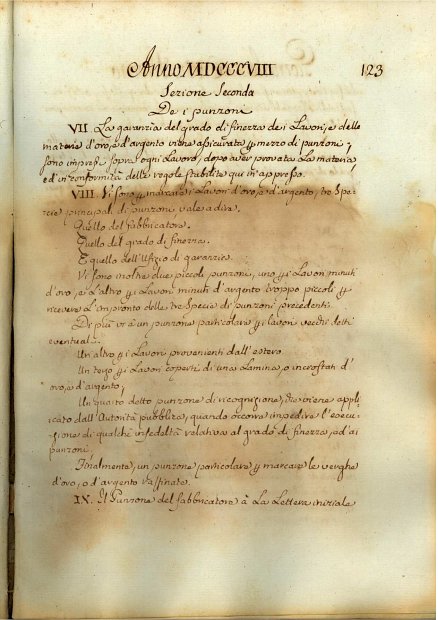 Anno MDCCCVIII 123
Sezione Seconda
De i punzoni
VII La garanzia del grado di finezza de i Lavori, e delle
materie d'oro, e d'argento viene assicurata p mezzo di punzoni,
sono impressi sopra ogni Lavoro, dopo aver provata La materia,
ed in conformità delle regole stabilite qui in appresso.
VIII. Vi sono p marcare i Lavori d'oro, e d'argento, tre Spe-
cie principali di punzoni vale a dire.
Quello del fabbricatore.
Quello del grado di finezza.
E quello dell'Ufizio di garanzia.
Vi sono inoltre due piccoli punzoni, uno p i Lavori minuti
d'oro, e L'altro p i Lavori minuti d'argento troppo piccoli p
ricevere L'impronto delle tre Specie di punzoni precedenti.
Di più vi à un punzone particolare p i lavori vecchi detti
eventuale.
Un altro p i Lavori provenienti dall'estero
Un terzo p i Lavori coperti di una Lamina, o incrostati d'
oro, e d'argento,
Un quarto detto punzone di ricognizione, che viene appli
cato dall'Autorità pubblica, quando occorra impedire l'esecu-
zione di qualche infedeltà relativa al grado di finezza, ed ai
punzoni,
Finalmente, un punzone particolare p marcare le verghe
d'oro, o d'argento raffinate.
IX. Il Punzone del fabbricatore à La Lettera iniziale